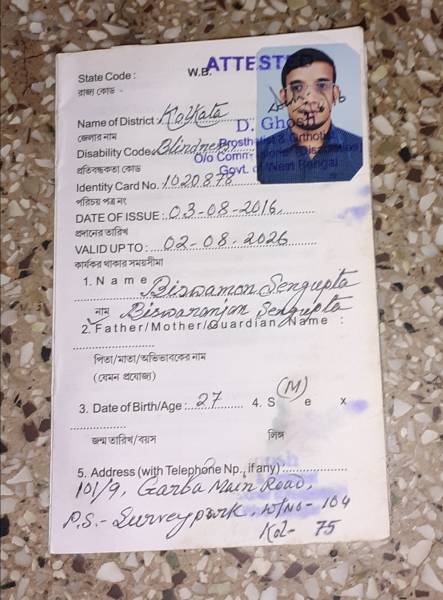 ATTESTED
State Code : W.B.
রাজ্য কোড -
Name of District : Kolkata
জেলার নাম
D. Ghosh
Disability Code : Blindness
Prosthetist & Orthotist
প্রতিবন্ধকতা কোড
O/o Comm
Identity Card No. 1020878
Govt. of West Bengal
পরিচয় পত্র নং
DATE OF ISSUE : 03-08-2016
প্রদানের তারিখ
VALID UP TO : 02-08-2026
কার্যকর থাকার সময়সীমা
1. Name Biswamon Sengupta
নাম Biswaranjan Sengupta
2. Father/Mother/Guardian Name :
পিতা/মাতা/অভিভাবকের নাম
(যেমন প্রযোজ্য)
3. Date of Birth/Age : 27 4. Sex (M)
জন্ম তারিখ/বয়স লিঙ্গ
5. Address (with Telephone Np., if any)
101/9, Garfa Main Road,
P.S.- Survey park, W/No- 104
Kol- 75